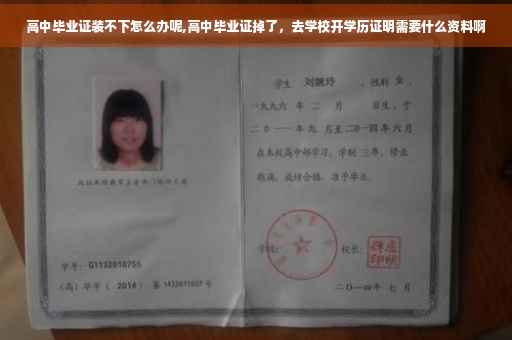 高中毕业证装不下怎么办呢,高中毕业证掉了，去学校开学历证明需要什么资料啊
学生 刘婉玲 ，性别 女 ，
一九九六 年 二 月 日生，于
二0一一 年 九 月至 二0一四 年 六 月
在本校高中部学习，学制 三年，修业
期满，成绩合格，准予毕业。
学号： G1132010755
校长：
（高）毕字（ 2014 ）第 1432011027 号
二〇一四年 七 月